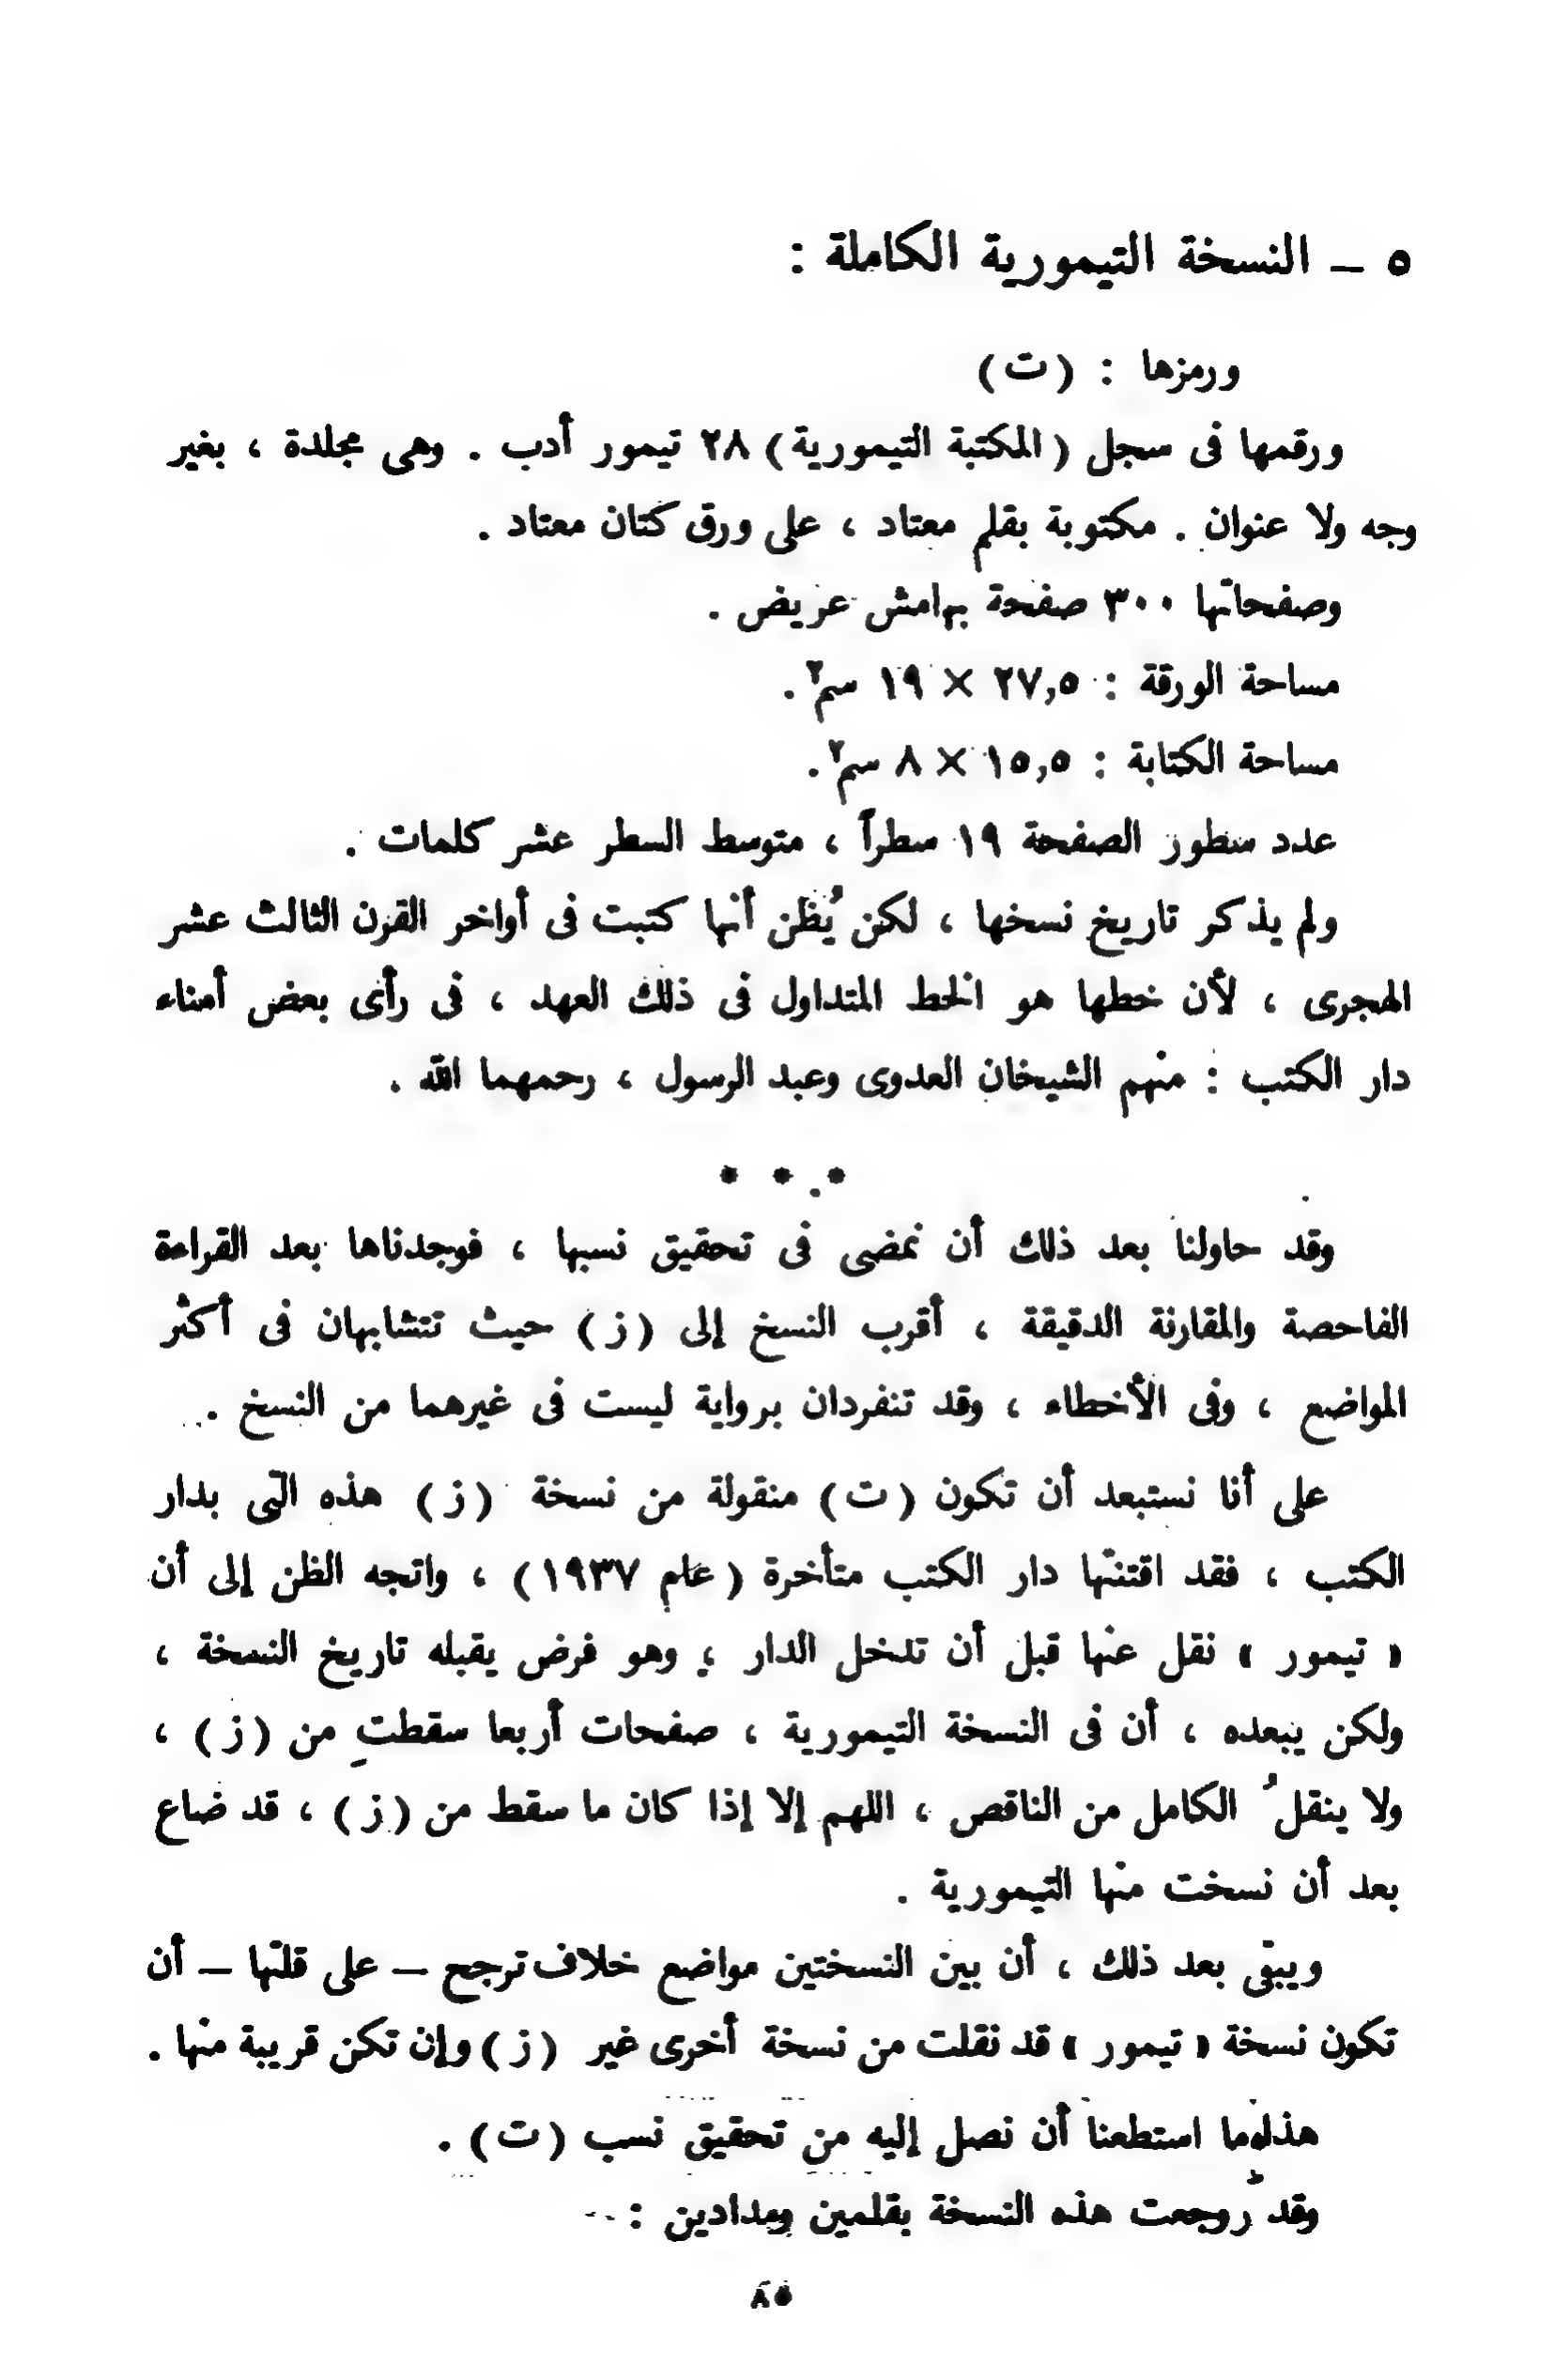 ٥ – النسخة التيمورية الكاملة :
ورمزها : (ت)
ورقمها فى سجل (المكتبة التيمورية) ٢٨ تيمور أدب . وهى مجلدة ، بغير
وجه ولا عنوان . مكتوبة بقلم معتاد ، على ورق كتان معتاد .
وصفحاتها ٣٠٠ صفحة بهامش عريض .
مساحة الورقة : ٢٧,٥ × ١٩ سم٢ .
مساحة الكتابة : ١٥,٥ × ٨ سم٢ .
عدد سطور الصفحة ١٩ سطراً ، متوسط السطر عشر كلمات .
ولم يذكر تاريخ نسخها ، لكن يُظن أنها كتبت فى أواخر القرن الثالث عشر
الهجرى ، لأن خطها هو الخط المتداول فى ذلك العهد ، فى رأى بعض أمناء
دار الكتب : منهم الشيخان العدوى وعبد الرسول ، رحمهما الله .
* * *
وقد حاولنا بعد ذلك أن نمضى فى تحقيق نسبها ، فوجدناها بعد القراءة
الفاحصة والمقارنة الدقيقة ، أقرب النسخ إلى (ز) حيث تتشابهان فى أكثر
المواضع ، وفى الأخطاء ، وقد تنفردان برواية ليست فى غيرهما من النسخ .
على أنا نستبعد أن تكون (ت) منقولة من نسخة (ز) هذه التى بدار
الكتب ، فقد اقتنتها دار الكتب متأخرة (عام ١٩٣٧) ، واتجه الظن إلى أن
« تيمور » نقل عنها قبل أن تدخل الدار ؛ وهو فرض يقبله تاريخ النسخة ،
ولكن يبعده ، أن فى النسخة التيمورية ، صفحات أربعا سقطتِ من (ز) ،
ولا ينقلُ الكامل من الناقص ، اللهم إلا إذا كان ما سقط من (ز) ، قد ضاع
بعد أن نسخت منها التيمورية .
ويبقى بعد ذلك ، أن بين النسختين مواضع خلاف ترجح – على قلتها – أن
تكون نسخة « تيمور » قد نقلت من نسخة أخرى غير (ز) وإن تكن قريبة منها .
هذا ما استطعنا أن نصل إليه من تحقيق نسب (ت) .
وقد روجعت هذه النسخة بقلمين ومدادين :
٨٥